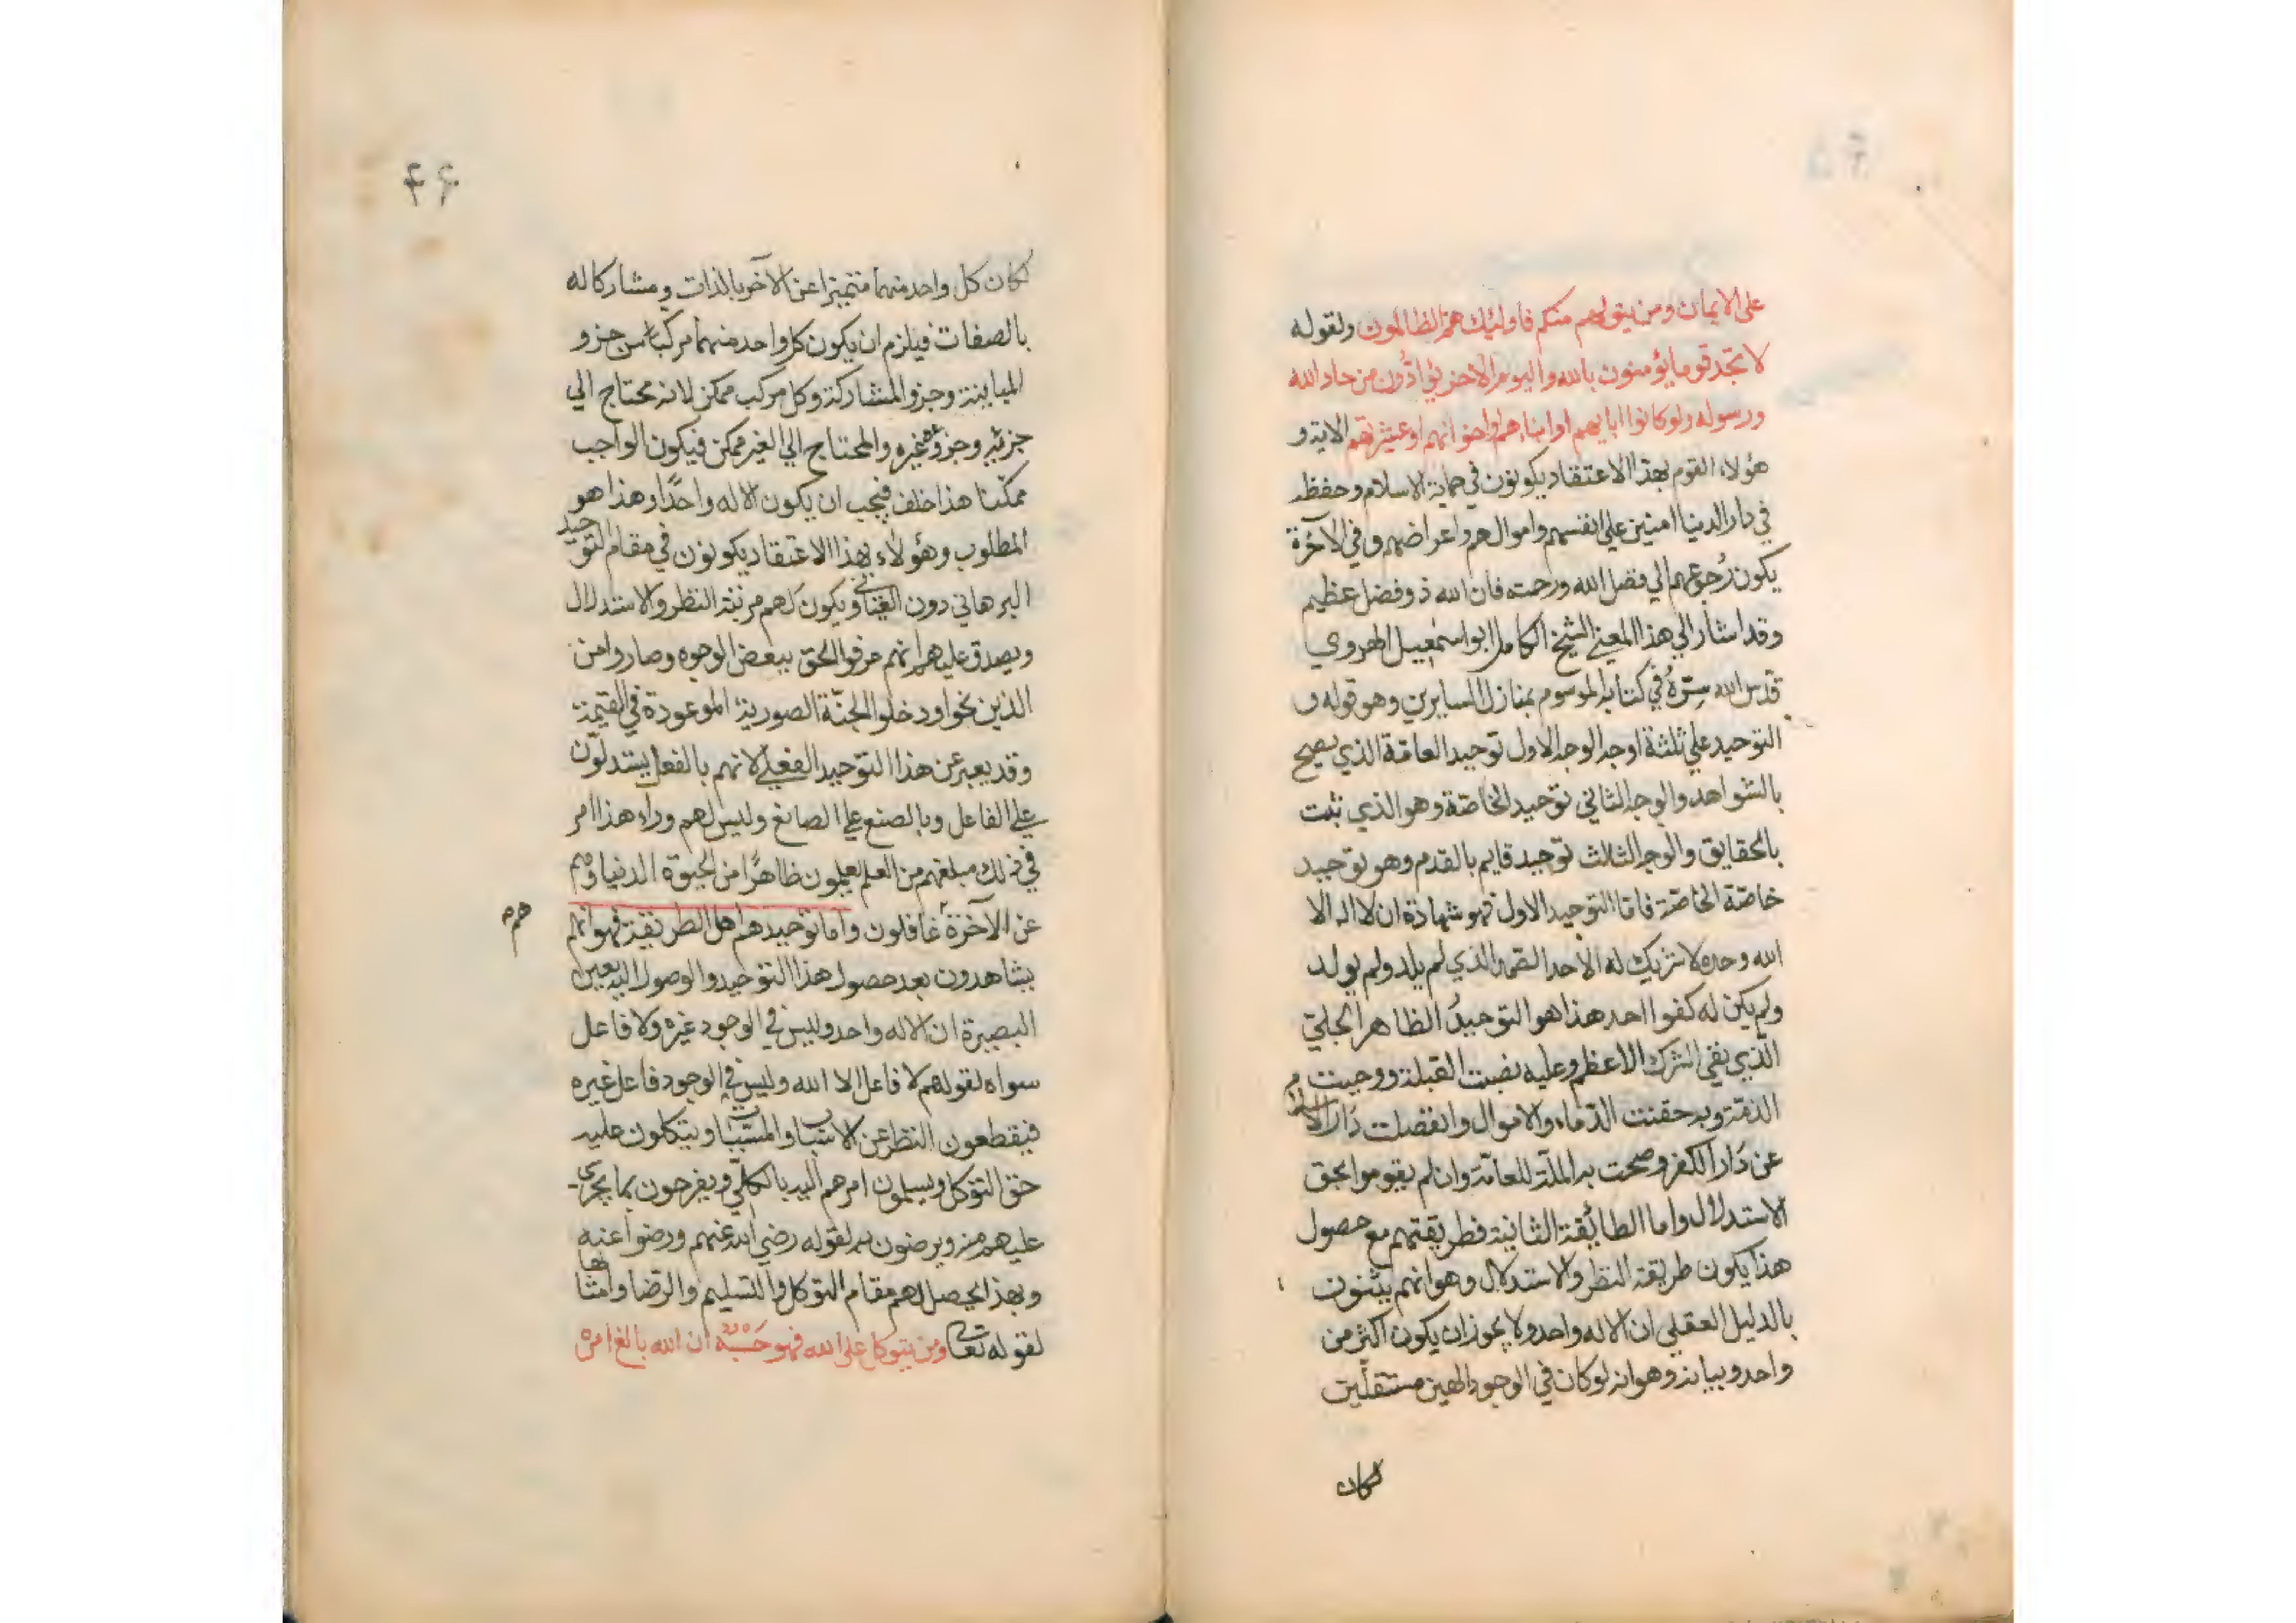 على الايمان ومن يتولهم منكم فاولئك هم الظالمون ولقوله
لا تجد قوما يؤمنون بالله واليوم الاخر يوادّون من حاد الله
ورسوله ولو كانوا اباءهم او ابناءهم او اخوانهم او عشيرتهم الاية و
هؤلاء القوم بهذا الاعتقاد يكونون في حماية الاسلام وحفظه
في دار الدنيا امنين على انفسهم واموالهم واعراضهم وفي الآخرة
يكون رُجوعهم الي فضل الله ورحمته فان الله ذو فضل عظيم
وقد اشار الي هذا المعنى الشيخ الكامل ابو اسمعيل الهروي
قدّس الله سِرّهُ في كتابه الموسوم بمنازل السايرين وهو قوله و
التوحيد علي ثلثة اوجه الوجه الاول توحيد العامّة الذي يصح
بالشواهد والوجه الثاني توحيد الخاصّة وهو الذي يثبت
بالحقايق والوجه الثالث توحيد قايم بالقدم وهو توحيد
خاصّة الخاصّة فامّا التوحيد الاول فهو شهادة ان لا اله الا
الله وحده لا شريك له الأحد الصّمد الذي لم يلد ولم يولد
ولم يكن له كفوا احد هذا هو التوحيدُ الظاهر الجليّ
الّذي نفى الشرك الاعظم وعليه نصبت القبلة ووجبت به
الذمّة وبه حقنت الدّماء والاموال وانفصلت دَار الاسلام
عن دَار الكفر وصحت به الملّة للعامّة وان لم يقوموا بحق
الاستدلال واما الطائفة الثانية فطريقتهم مع حصول
هذا يكون طريقة النظر والاستدلال وهو انهم يثبتون
بالدليل العقلي ان الاله واحد ولا يجوز ان يكون اكثر من
واحد وبيانه وهو انه لو كان في الوجود الهين مستقلّين
لكان
۴۶
لكان كل واحد منهما متميزا عن الآخر بالذات ومشاركا له
بالصفات فيلزم ان يكون كل واحد منهما مركبا من جزو
المباينة وجزو المشاركة وكل مركب ممكن لانه محتاج الي
جزئيه وجزوه غيره والمحتاج الي الغير ممكن فيكون الواجب
ممكنا هذا خلف فيجب ان يكون الاله واحدًا وهذا هو
المطلوب وهؤلاء بهذا الاعتقاد يكونون في مقام التوحيد
البرهاني دون العياني ويكون لهم مرتبة النظر والاستدلال
ويصدق عليهم انهم عرفوا الحق ببعض الوجوه وصاروا من
الذين نجوا ودخلوا الجنّة الصورية الموعودة في القيمة
وقد يعبر عن هذا التوحيد الفعلي لانهم بالفعل يستدلّون
علي الفاعل وبالصنع علي الصانع وليس لهم وراء هذا امر
في ذلك مبلغهم من العلم يعلمون ظاهرًا من الحيوة الدنيا وهم
عن الآخرة غافلون وامّا توحيد اهل الطريقة فهو انهم
هم
يشاهدون بعد حصول هذا التوحيد والوصول اليه بعين
البصيرة ان الاله واحد وليس في الوجود غيره ولا فاعل
سواه لقولهم لا فاعل الا الله وليس في الوجود فاعل غيره
فيقطعون النظر عن الاسباب والمسبّبات ويتكلون عليه
حق التوكل ويسلمون امرهم اليه بالكلّي ويفرحون بما يجرى
عليهم منه ويرضون به لقوله رضي الله عنهم ورضوا عنه
وبهذا يحصل لهم مقام التوكل والتسليم والرّضا وامثالها
لقوله تعالى ومن يتوكل على الله فهو حَسْبُه ان الله بالغ امره